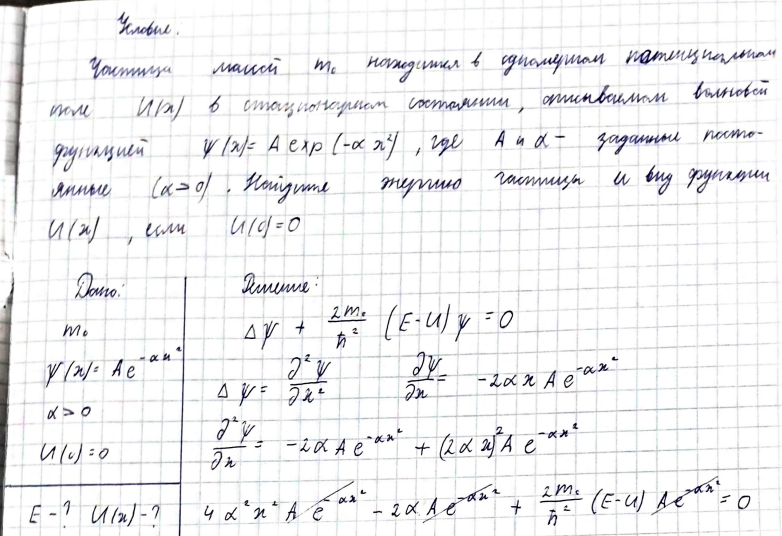 Условие.
Частица массой m₀ находится в одномерном потенциальном
поле U(x) в стационарном состоянии, описываемом волновой
функцией ψ(x)= A exp(-αx²), где A и α - заданные посто-
янные (α>0). Найдите энергию частицы и вид функции
U(x), если U(0)=0
Дано:
m₀
ψ(x)= A e^{-αx²}
α>0
U(0)=0
E-? U(x)-?
Решение:
Δψ + \frac{2m₀}{ħ²} (E-U)ψ = 0
Δψ = \frac{∂²ψ}{∂x²} \frac{∂ψ}{∂x} = -2αx A e^{-αx²}
\frac{∂²ψ}{∂x} = -2αA e^{-αx²} + (2αx)² A e^{-αx²}
4α²x² A e^{-αx²} - 2αA e^{-αx²} + \frac{2m₀}{ħ²} (E-U) A e^{-αx²} = 0